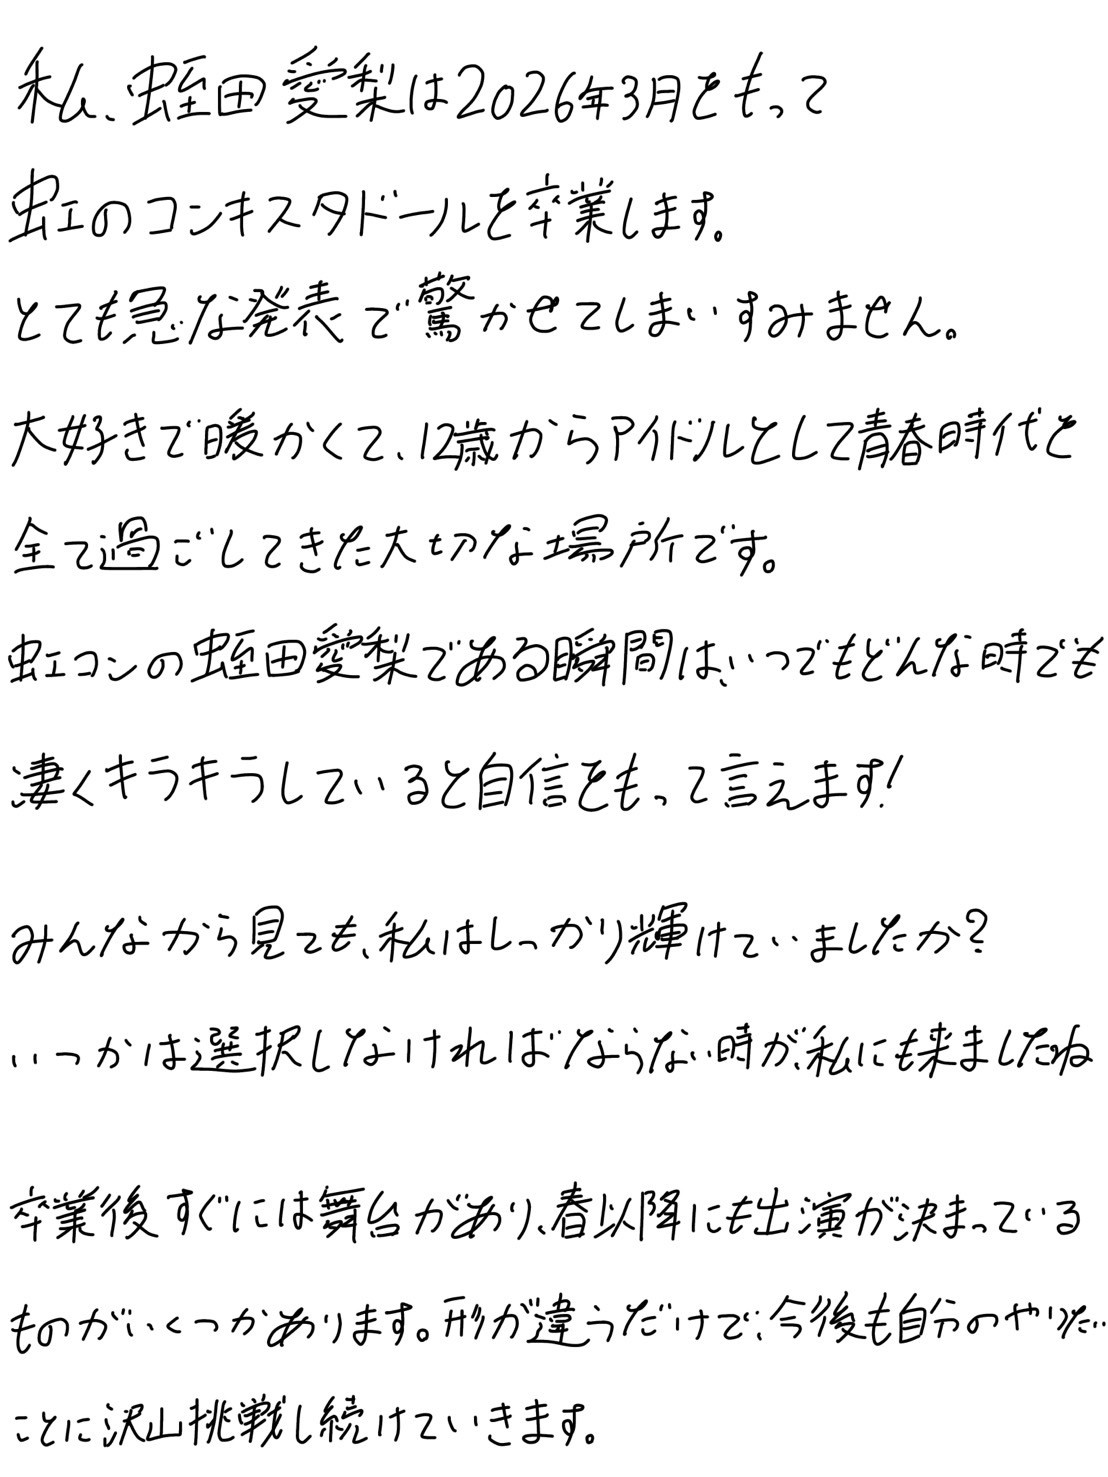 私、蛭田愛梨は2026年3月をもって
虹のコンキスタドールを卒業します。
とても急な発表で驚かせてしまいすみません。
大好きで暖かくて、12歳からアイドルとして青春時代を
全て過ごしてきた大切な場所です。
虹コンの蛭田愛梨である瞬間は、いつでもどんな時でも
凄くキラキラしていると自信をもって言えます!
みんなから見ても、私はしっかり輝けていましたか?
いつかは選択しなければならない時が、私にも来ましたね
卒業後すぐには舞台があり、春以降にも出演が決まっている
ものがいくつかあります。形が違うだけで、今後も自分のやりたい
ことに沢山挑戦し続けていきます。